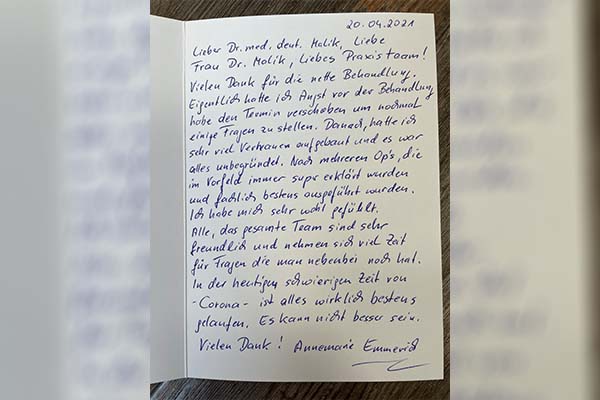 20.04.2021
Lieber Dr. med. dent. Malik, Liebe
Frau Dr. Malik, Liebes Praxisteam!
Vielen Dank für die nette Behandlung.
Eigentlich hatte ich Angst vor der Behandlung,
habe den Termin verschoben um nochmal
einige Fragen zu stellen. Danach, hatte ich
sehr viel Vertrauen aufgebaut und es war
alles unbegründet. Nach mehreren Op's, die
im Vorfeld immer super erklärt wurden
und fachlich bestens ausgeführt wurden.
Ich habe mich sehr wohl gefühlt.
Alle, das gesamte Team sind sehr
freundlich und nehmen sich viel Zeit
für Fragen die man nebenbei noch hat.
In der heutigen schwierigen Zeit von
-Corona- ist alles wirklich bestens
gelaufen. Es kann nicht besser sein.
Vielen Dank! Annemarie Emmerich